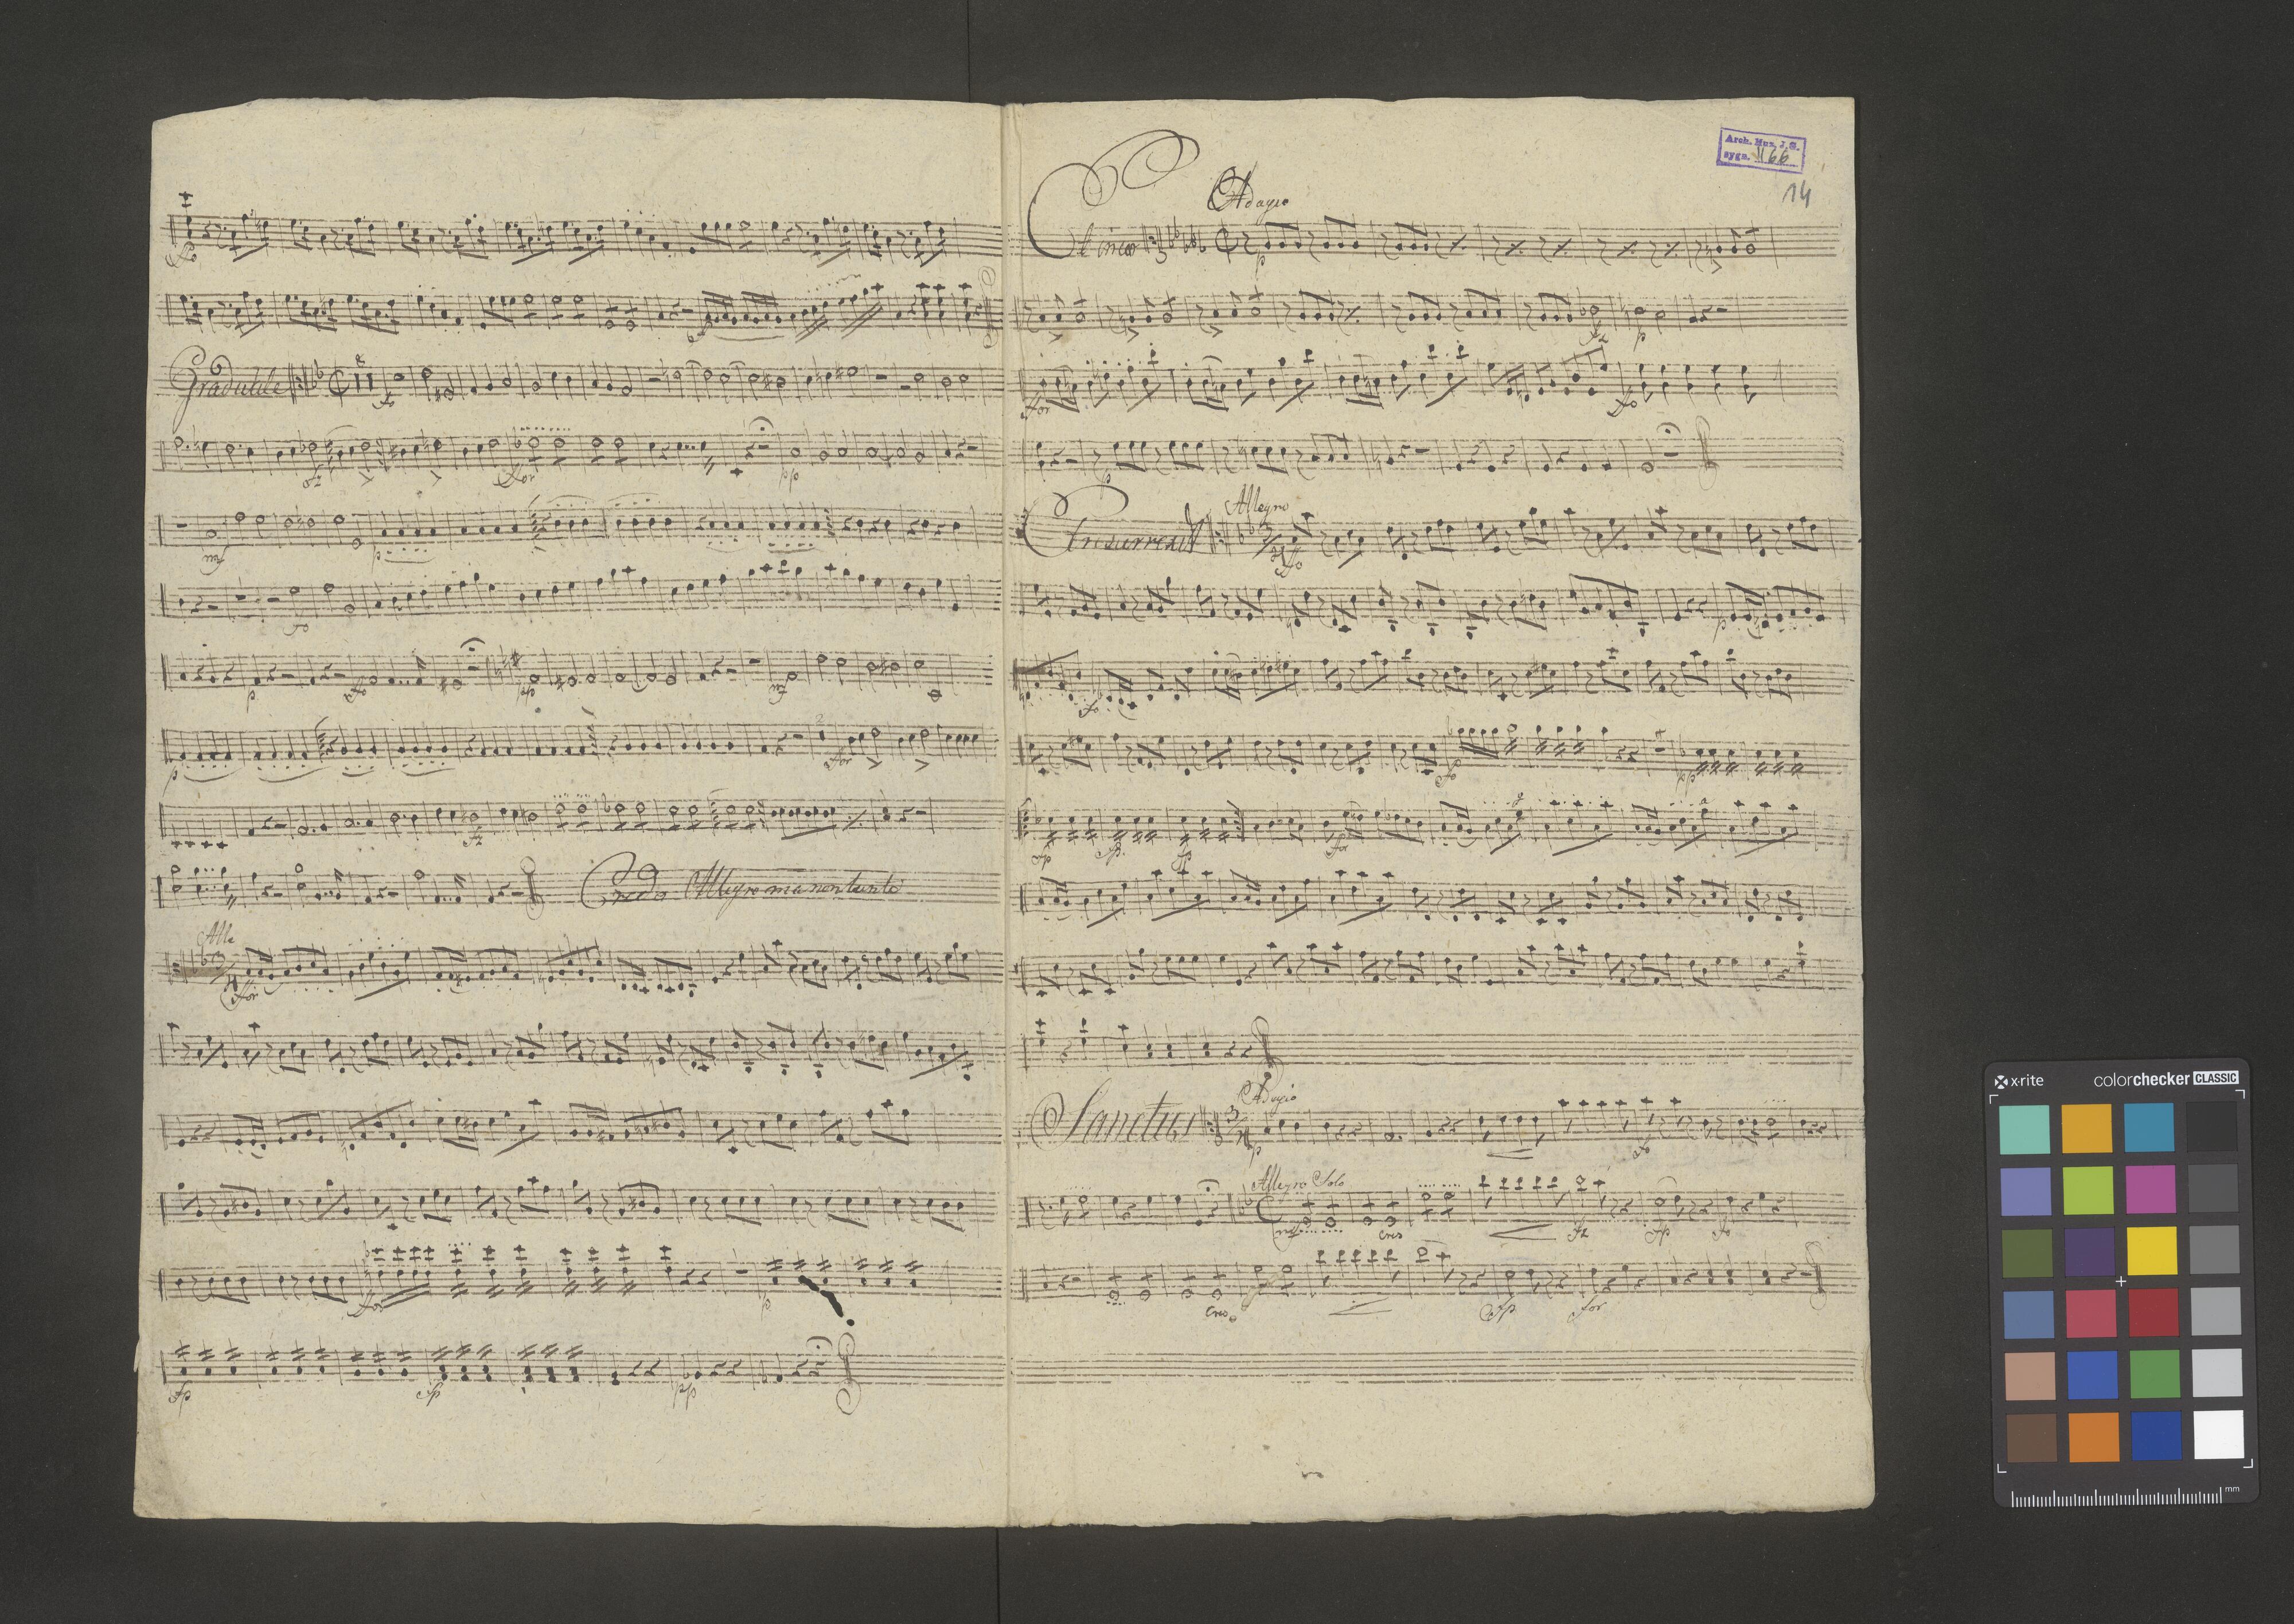 fo
Graduale
fo
fz
for
pp
mf
p
fo
p
fo
pp
mf
p
2
for
fz
Credo Allegro ma non tanto
Allo
for
for
p
fp
fp
pp
Arch. Muz. J. G.
sygn. II 66
14
Adagio
Et incar
p
fz
p
for
fo
p
Allegro
Et resurrexit
3/4
fo
p
fo
fo
pp
fp
fp
fp
for
Adagio
Sanctus
3/4
p
fo
Allegro Solo
mf
cres
fz
fp
fo
cres
fp
for
x-rite
colorchecker CLASSIC
mm